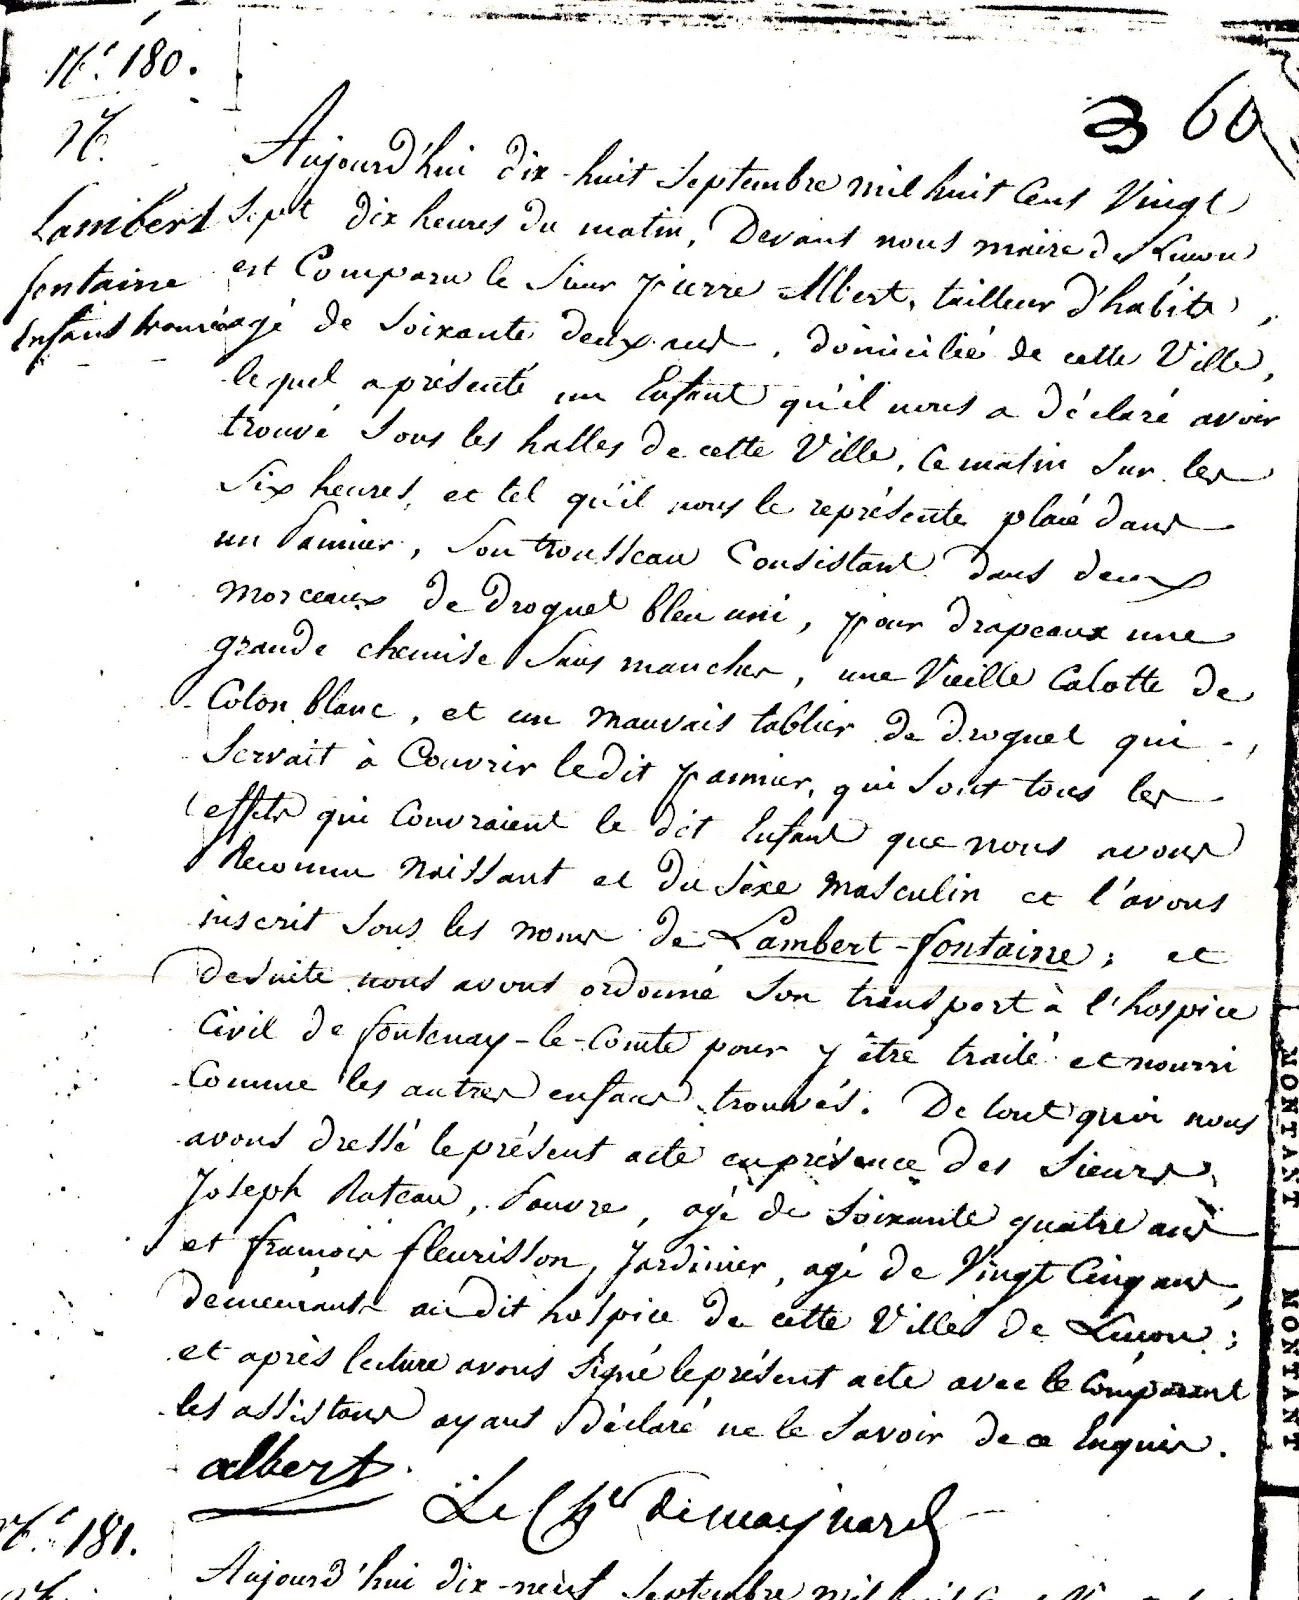 N.º 180.
N.
Lambert
fontaine
Enfant trouvé
3 60
Aujourd'hui dix-huit Septembre mil huit Cens Vingt
Sept dix heures du matin, Devant nous maire de Luçon
est Comparu le Sieur pierre Albert, tailleur d'habits,
agé de Soixante deux ans, domicilié de cette Ville,
lequel a présenté un Enfant qu'il nous a déclaré avoir
trouvé Sous les halles de cette Ville, Ce matin Sur les
Six heures, et tel qu'il nous le représente placé dans
un Pannier, Son trousseau Consistant dans deux
morceaux de droguet bleu uni, pour drapeaux une
grande chemise Sans manches, une Vieille Calotte de
Coton blanc, et un mauvais tablier de droguet qui
Servait à Couvrir le dit pannier, qui Sont tous les
effets qui Couvraient le dit Enfant que nous avons
Reconnu Naissant et du Sexe masculin et l'avons
inscrit Sous les noms de Lambert-fontaine; et
desuite nous avons ordonné Son transport à l'hospice
Civil de fontenay-le-Comte pour y être traité et nourri
Comme les autres enfans trouvés. De tout quoi nous
avons dressé le présent acte en présence des Sieurs
Joseph Rateau, Pauvre, agé de Soixante quatre ans
et françois fleurisson, Jardinier, agé de Vingt Cinq ans,
demeurant au dit hospice de cette Ville de Luçon;
et après lecture avons Signé le présent acte avec le Comparant
les assistans ayant déclaré ne le Savoir de ce Enquis.
albert
Le Ch.er De maynard
N.º 181.
N.
Aujourd'hui dix-neuf Septembre mil huit
MONTANT
MONTANT